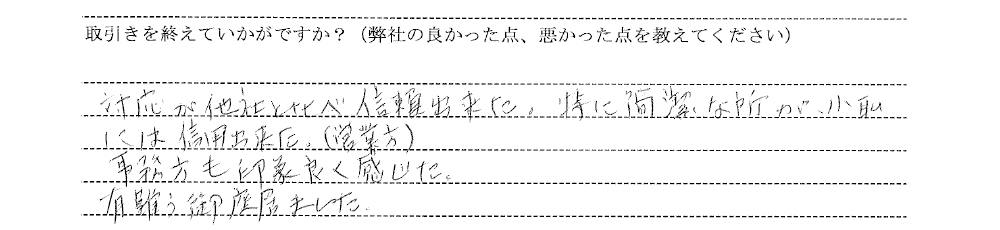 取引きを終えていかがですか？（弊社の良かった点、悪かった点を教えてください）
対応が他社と比べ信頼出来た。特に簡潔な所が、小私
には信用出来た。（営業方）
事務方も印象良く感じた。
有難う御座居ました。